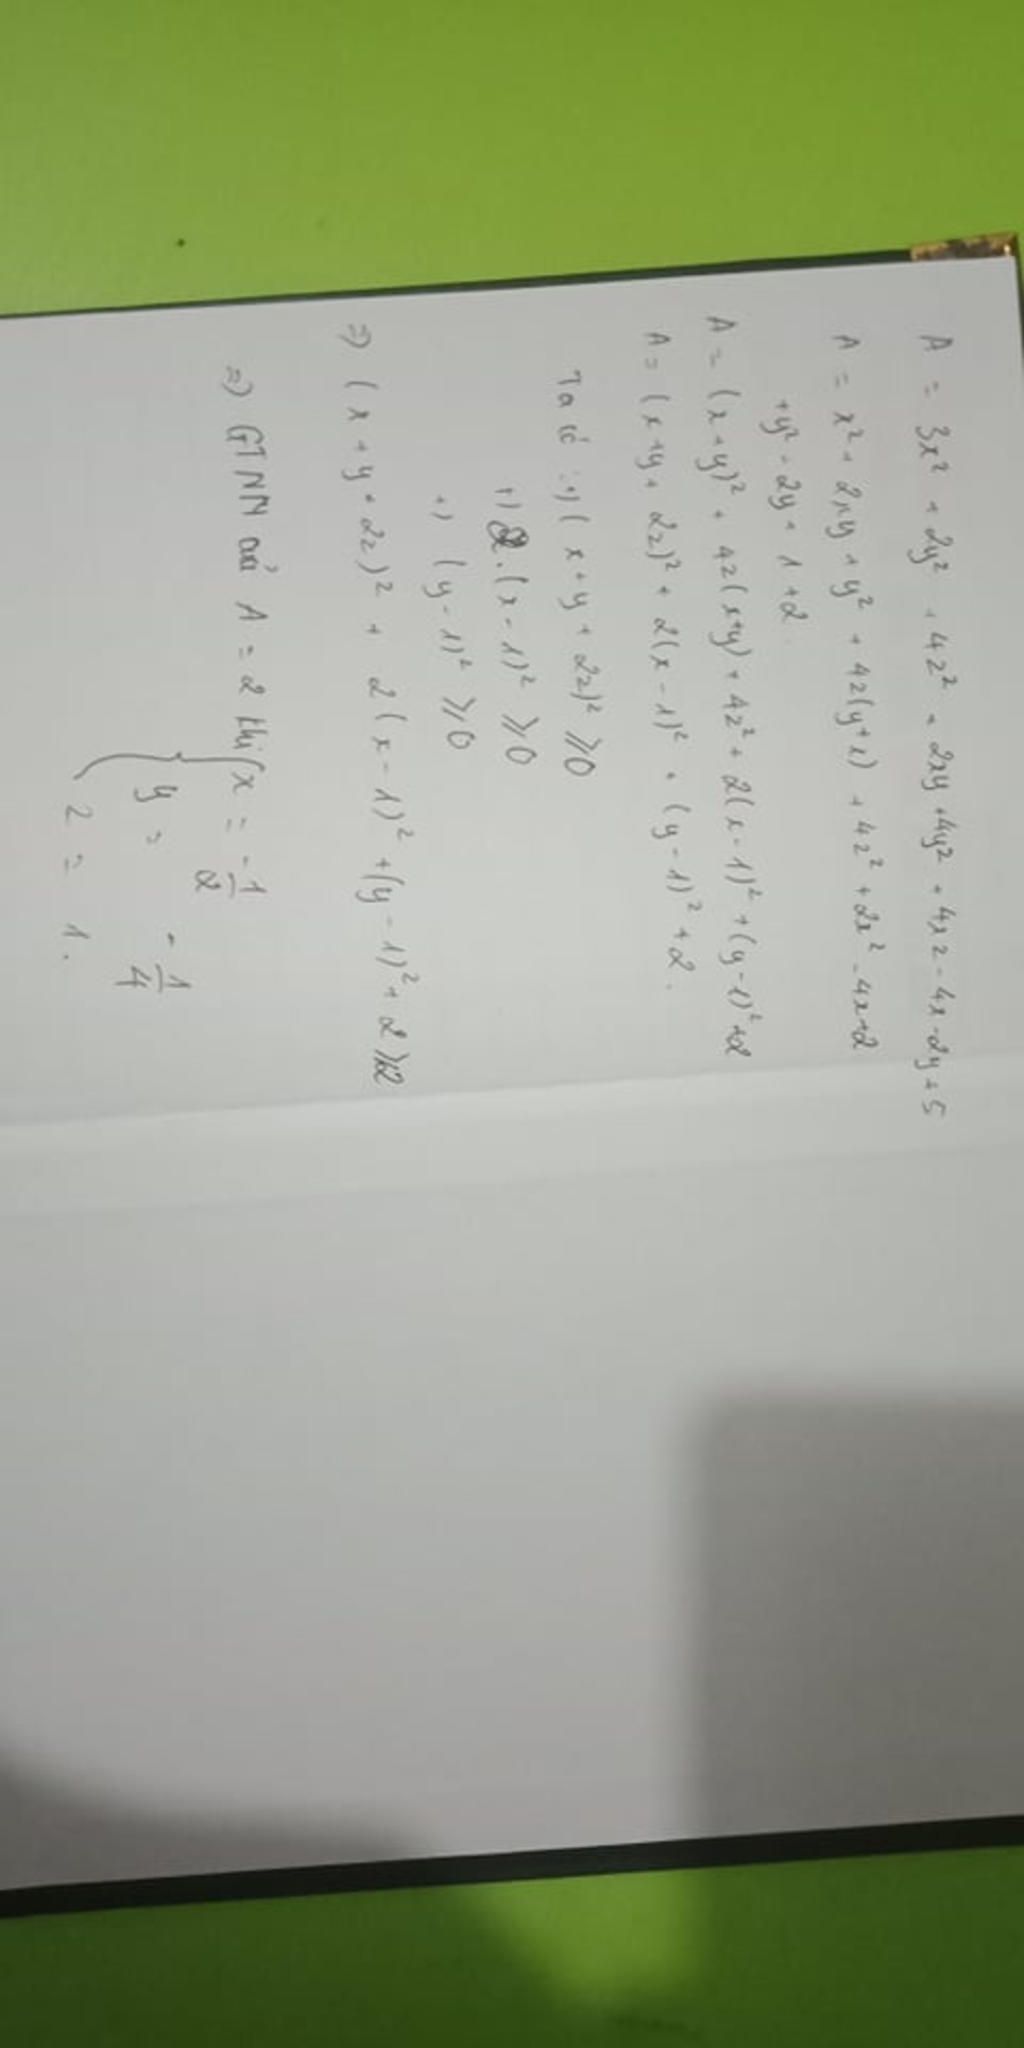 A = 3x² + 2y² + 4z² + 2xy + 4y² + 4xz - 4x - 2y + 5
A = x² + 2xy + y² + 4z(y+x) + 4z² + 2x² - 4x + 2
+ y² - 2y + 1 + 2.
A = (x+y)² + 4z(x+y) + 4z² + 2(x-1)² + (y-1)² + 2
A = (x+y+2z)² + 2(x-1)² + (y-1)² + 2.
Ta có : +) (x+y+2z)² ≥ 0
+) 2.(x-1)² ≥ 0
+) (y-1)² ≥ 0
=> (x+y+2z)² + 2(x-1)² + (y-1)² + 2 ≥ 2
=> GTNN của A = 2 khi { x = -1/2
y = -1/4
z = 1.